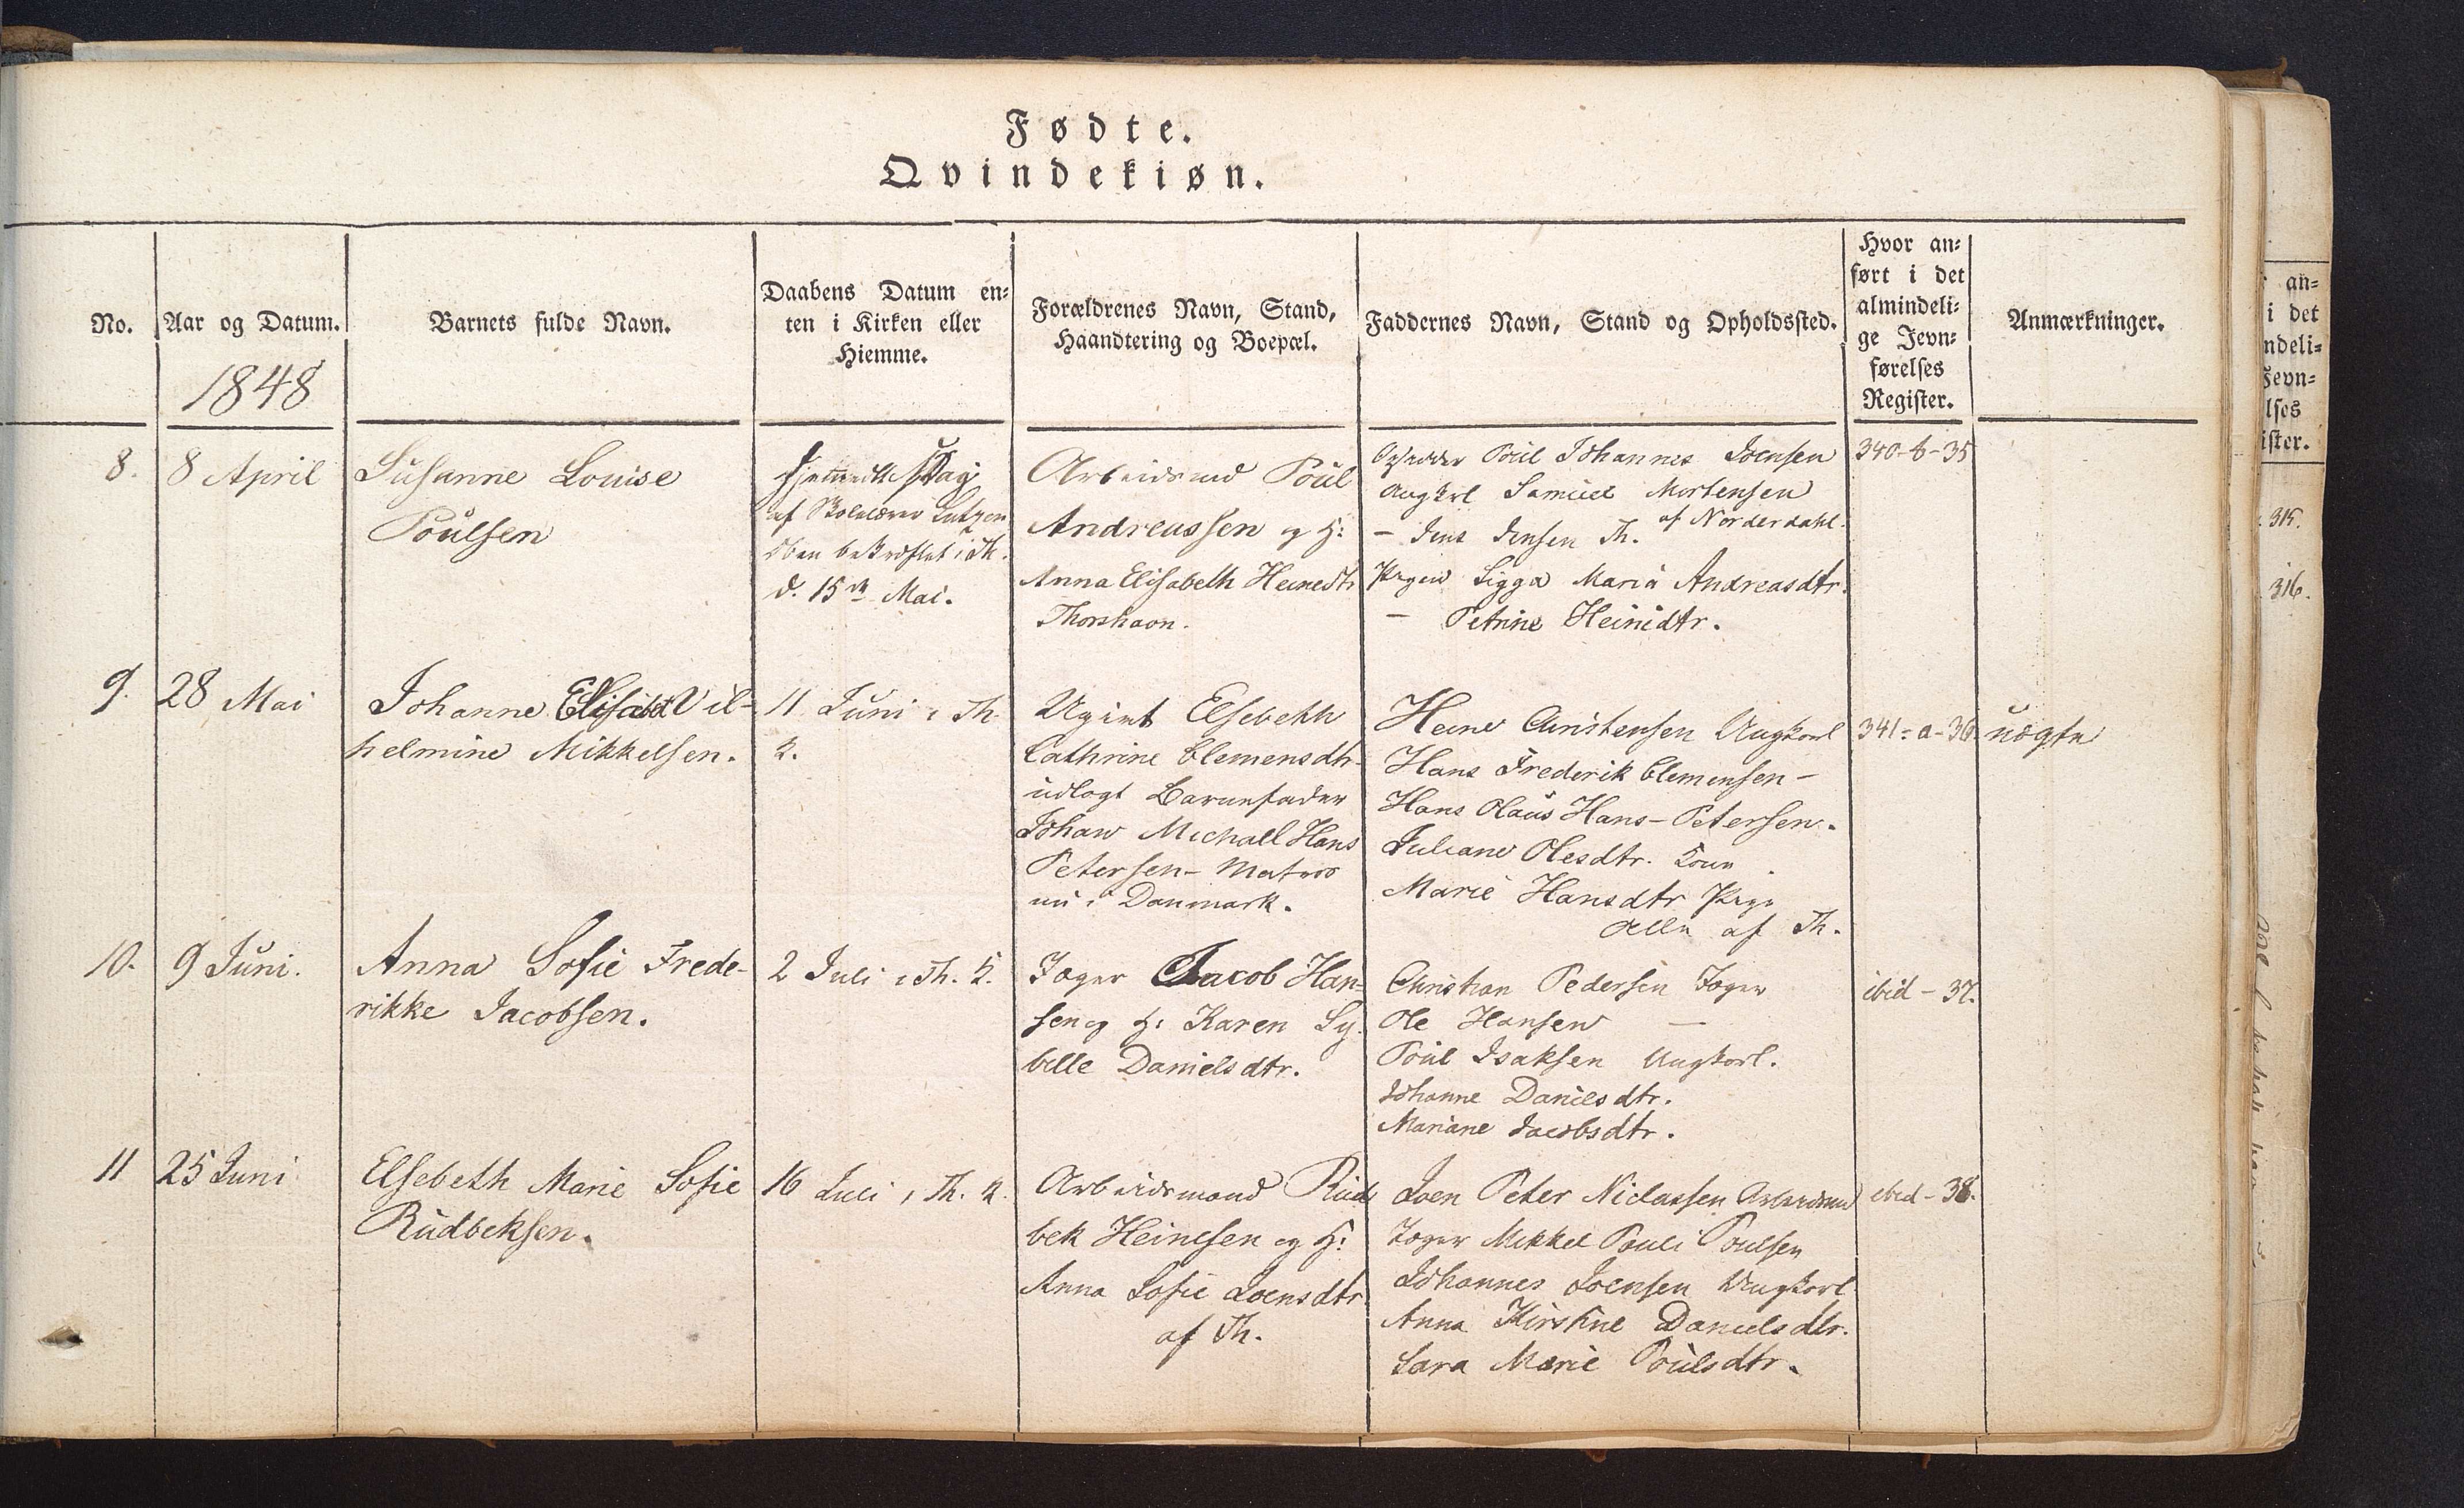 Fødte.
Qvindekiøn.
No.
Aar og Datum.
1848
Barnets fulde Navn.
Daabens Datum en-
ten i Kirken eller
Hiemme.
Forældrenes Navn, Stand,
Haandtering og Boepæl.
Faddernes Navn, Stand og Opholdssted.
Hvor an-
ført i det
almindeli-
ge Jevn-
førelses
Register.
Anmærkninger.
8.
8 April
Susanne Louise
Poulsen
Hjemmedbt Dag
af Skolelærer Lützen
d. 15de Mai.
Arbeidsmd Poul
Andreassen og H:
Anna Elisabeth Heinedtr
Thorshavn.
Poul Johannes Joensen
Ungkrl Samuel Mortensen
af Norderdahl.
- Jens Jensen Th.
Pigen Sigga Maria Andreasdtr.
- Petrine Heinidtr.
340-b-35
9.
28 Mai
Johanne Elisabet Vil-
helmine Mikkelsen.
11 Juni i Th.
K.
Ugivt Elsebeth
Cathrine Clemensdtr
udlagt Barnefader
Johan Michall Hans
Petersen - Matros
nu i Danmark.
Heine Christensen Ungkarl
Hans Frederik Clemensen -
Hans Olaus Hans-Petersen.
Juliane Olesdtr. Kone
Marie Hansdtr Pige
Alle af Th.
341-a-36.
uægte
10.
9 Juni.
Anna Sofie Frede-
rikke Jacobsen.
2 Juli i Th. K.
Jæger Jacob Han-
sen og H: Karen Sy-
bille Danielsdtr.
Christian Pedersen Jæger
Ole Hansen -
Poul Isaksen Ungkarl.
Johanne Danielsdtr.
Mariane Jacobsdtr.
ibid - 37.
11
25 Juni
Elsebeth Marie Sofie
Rudbeksen.
16 Juli i Th. K.
Arbeidsmand Rud
bek Heinesen og H:
Anna Sofie Joensdtr
af Th.
Joen Peter Niclassen Arbeidsmd
Jæger Mikkel Pauli Poulsen
Johannes Joensen Ungkarl
Anna Kirstine Danielsdtr.
Sara Marie Poulsdtr.
ibid - 38.
an-
i det
ndeli-
Jevn-
lses
ister.
315.
316.